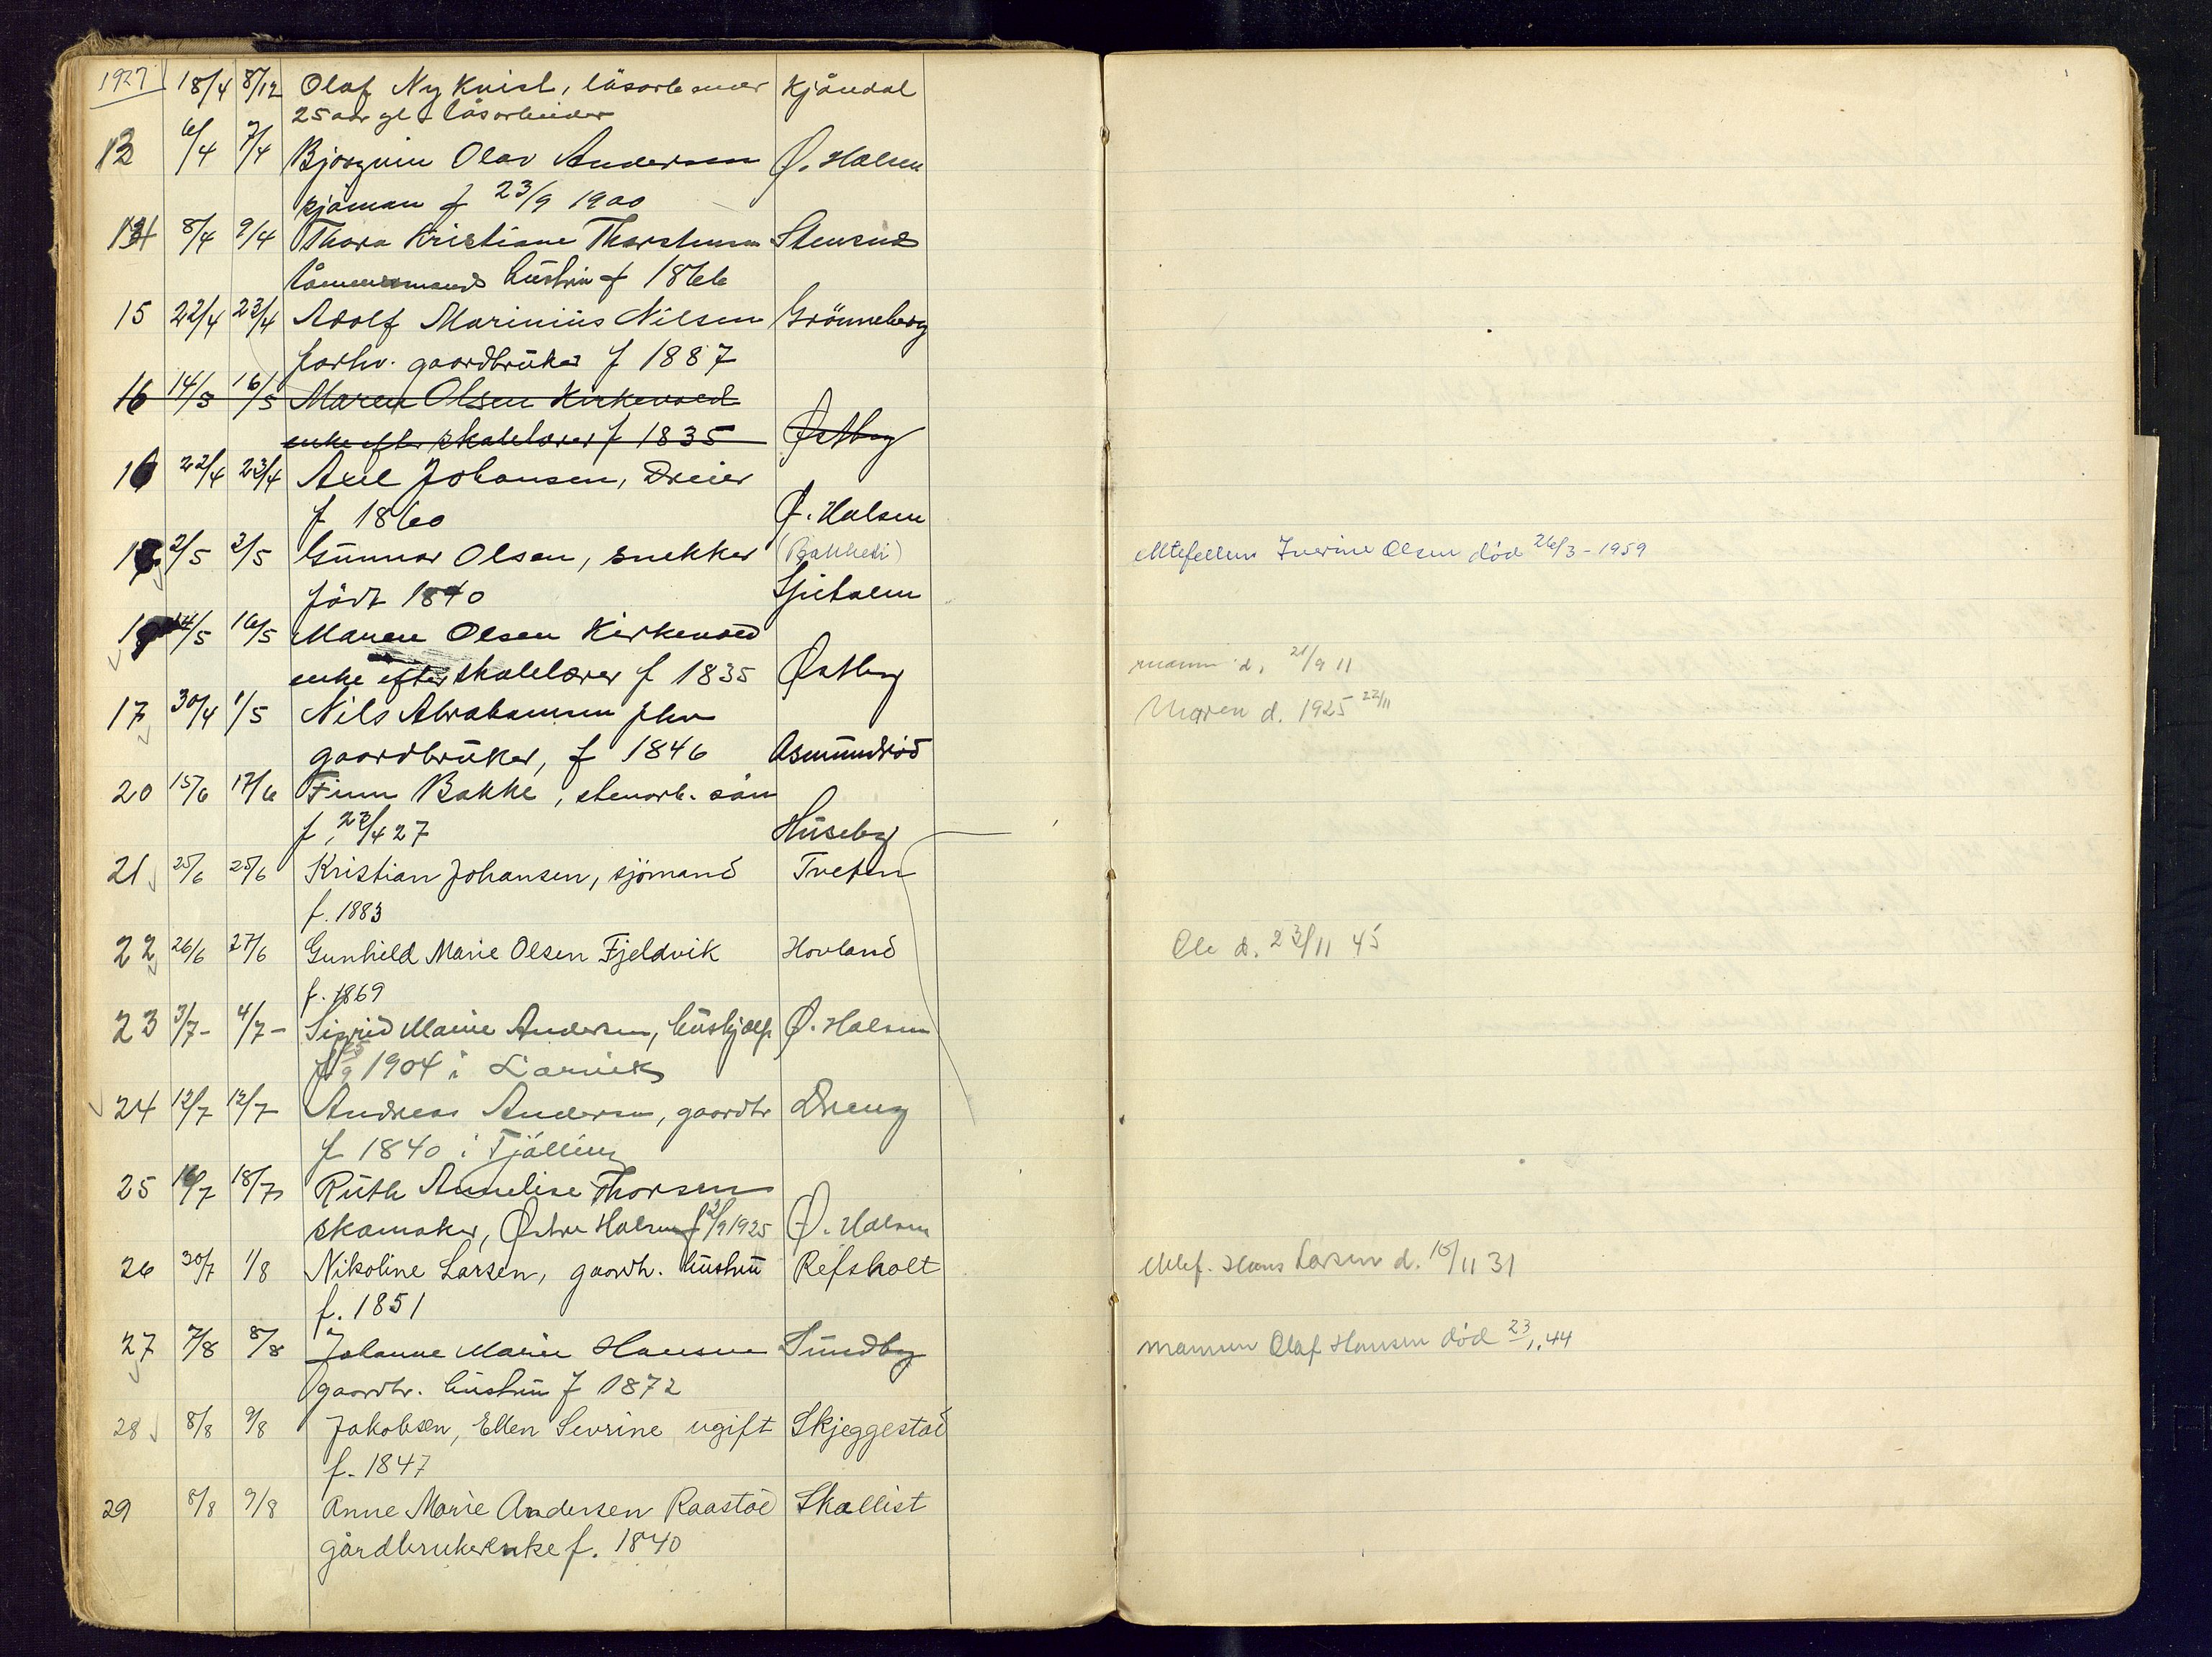 1927 18/4 8/12 Olaf Ny Kvist, låsarbeider Kjåndal
25 aar gl låsarbeider
13 6/4 7/4 Bjorgvin Olav Andersen Ø. Halsen
sjöman f 23/9 1900
14 8/4 9/4 Thora Kristiane Thorstensen Stensnes
tömmermands hüstru f 1866
15 22/4 23/4 Adolf Marinius Nilsen Grönneberg
forhv. gaardbrüker f 1887
16 14/5 16/5 Maren Olsen Kirkevoed
enke efter skolelærer f 1835 Østby
16 22/4 23/4 Axel Johansen, Dreier
f 1860 Ø. Halsen
18 2/5 3/5 Günnar Olsen, snekker (Bakkeli) Ektefellen Iverine Olsen död 26/3 - 1959
födt 1840
19 14/5 16/5 Maren Olsen Kirkevoed
enke efter skolelærer f 1835 Østby mann d. 21/9 11
17 30/4 1/5 Nils Abrahamsen fhv Maren d. 1925 22/11
gaardbrüker, f 1846 Asmündröd
20 15/6 17/6 Finn Bakke, stenarb. sön
f. 22/4 27 Hüseby
21 25/6 25/6 Kristian Johansen, sjömand Tveten
f. 1883
22 26/6 27/6 Gunhild Marie Olsen Fjeldvik Hovland Ole d. 23/11 45
f. 1869
23 3/7- 4/7- Sigrid Marie Andersen, hüshjælp Ø. Halsen
1904 i Larvik
24 12/7 12/7 Andreas Andersen, gaardbr Dreng
f 1840 i Tjölling
25 16/7 18/7 Rüth Annelise Thorsen
skomaker, Østre Halsen f 1925 Ø. Halsen
26 30/7 1/8 Nikoline Larsen, gaardb. hüstrü Refsholt Ektef. Hans Larsen d. 10/11 31
f. 1851
27 7/8 8/8 Johanne Marie Hansen Sündby mannen Olaf Hansen död 23/1. 44
gaardbr. hüstrü f 1872
28 8/8 9/8 Jakobsen, Ellen Sevrine ugift Skjeggestad
f. 1847
29 8/8 9/8 Anne Marie Andersen Raastad Skallist
gårdbrukerenke f. 1840